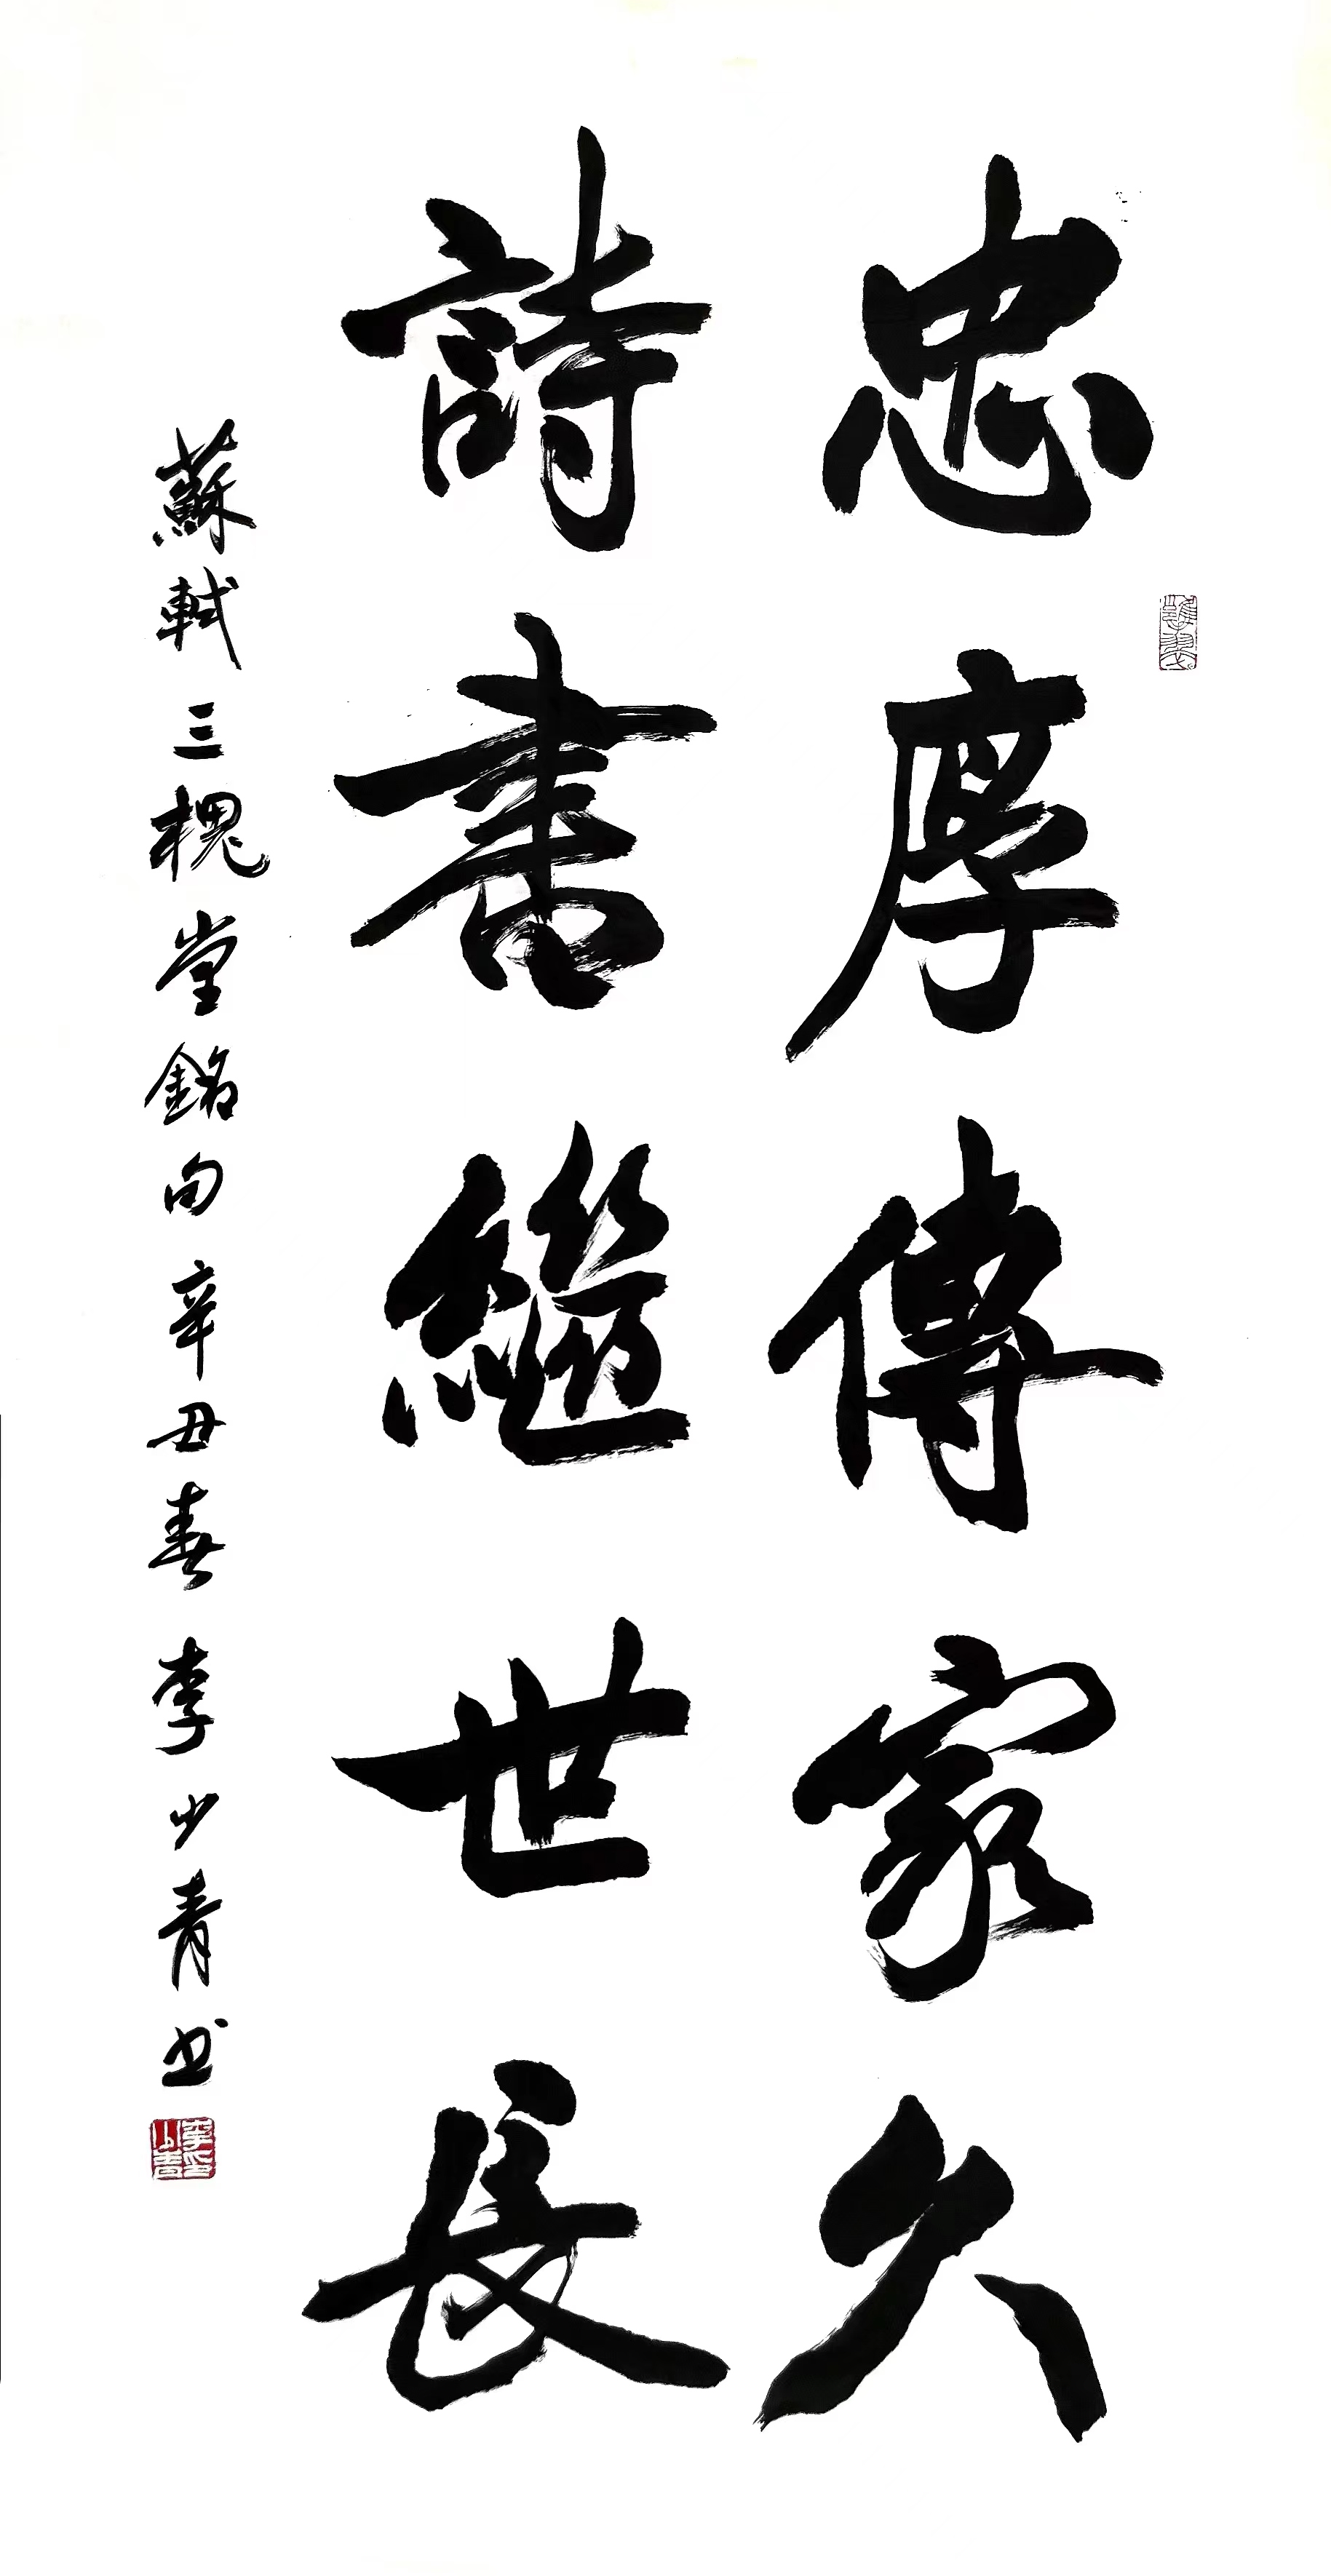 忠厚傳家久
詩書繼世長
蘇軾三槐堂銘句辛丑春李少青书
李少青印